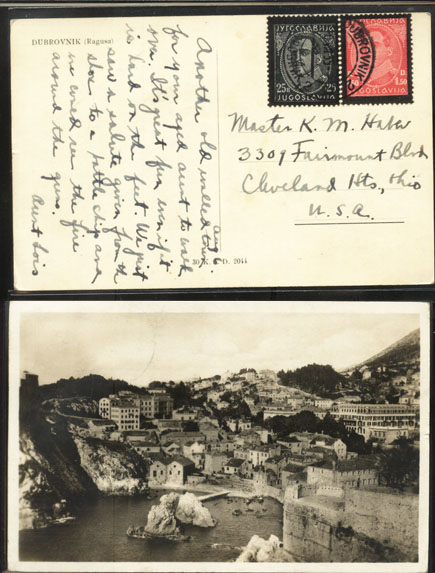 DUBROVNIK (Ragusa)
Another old walled town
for your aged aunt to walk
over. It's great fun even if it
is hard on the feet. We just
saw a salute given from the
shore to a little ship and
we could see the fire
around the guns.
Aunt Lois
30 K. D. 2044
ЈУГОСЛАВИЈА
25п 25п
JUGOSLAVIJA
ЈУГОСЛАВИЈА
D.
1.50 1.50
JUGOSLAVIJA
DUBROVNIK
Master K. M. Haber
3309 Fairmount Blvd
Cleveland Hts, Ohio
U.S.A.